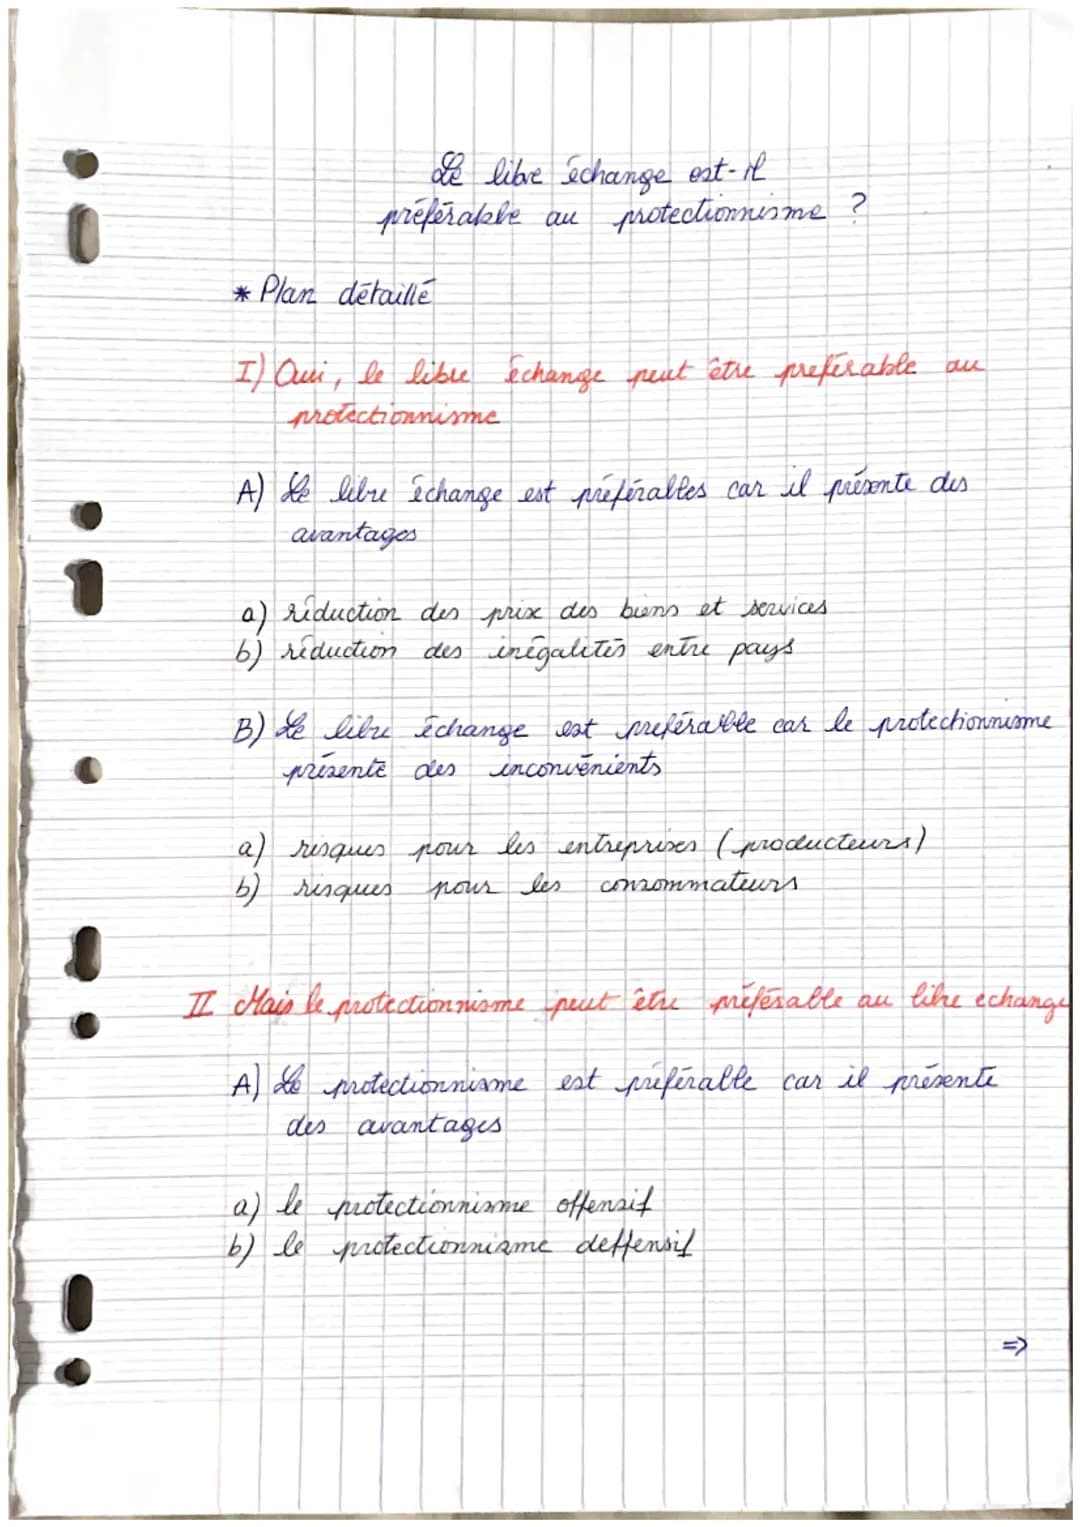 Le libre échange est-il
préférable au protectionnisme ?
* Plan détaillé
I) Oui, le libre échange peut être préférable au
protectionnisme
A) Le libre échange est préférables car il présente des
avantages
a) réduction des prix des biens et services
b) réduction des inégalités entre pays
B) Le libre échange est préférable car le protectionnisme
présente des inconvénients
a) risques pour les entreprises (producteurs)
b) risques pour les consommateurs
II Mais le protectionnisme peut être préférable au libre echange
A) Le protectionnisme est préférable car il présente
des avantages
a) le protectionnisme offensif
b) le protectionnisme deffensif
=>